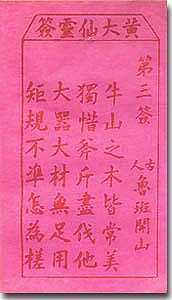 黃大仙靈簽
第三簽
古人魯班開山
牛山之木皆常美
獨惜斧斤盡伐他
大器大材無足用
矩規不準怎為槎